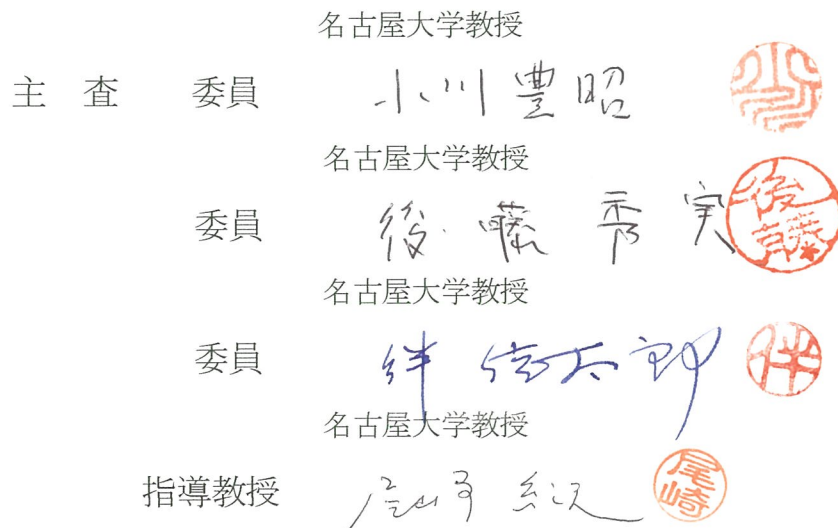 名古屋大学教授
主 査 委員 小川豊昭
名古屋大学教授
委員 後藤秀実 後藤
名古屋大学教授
委員 伴信太郎 伴
名古屋大学教授
指導教授 尾崎紀夫 尾崎